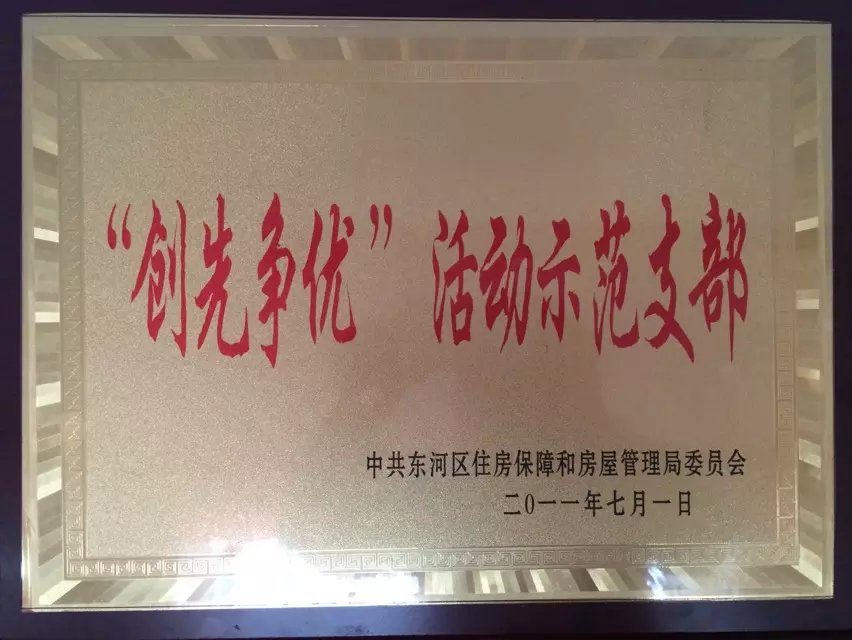 “创先争优”活动示范支部
中共东河区住房保障和房屋管理局委员会
二0一一年七月一日